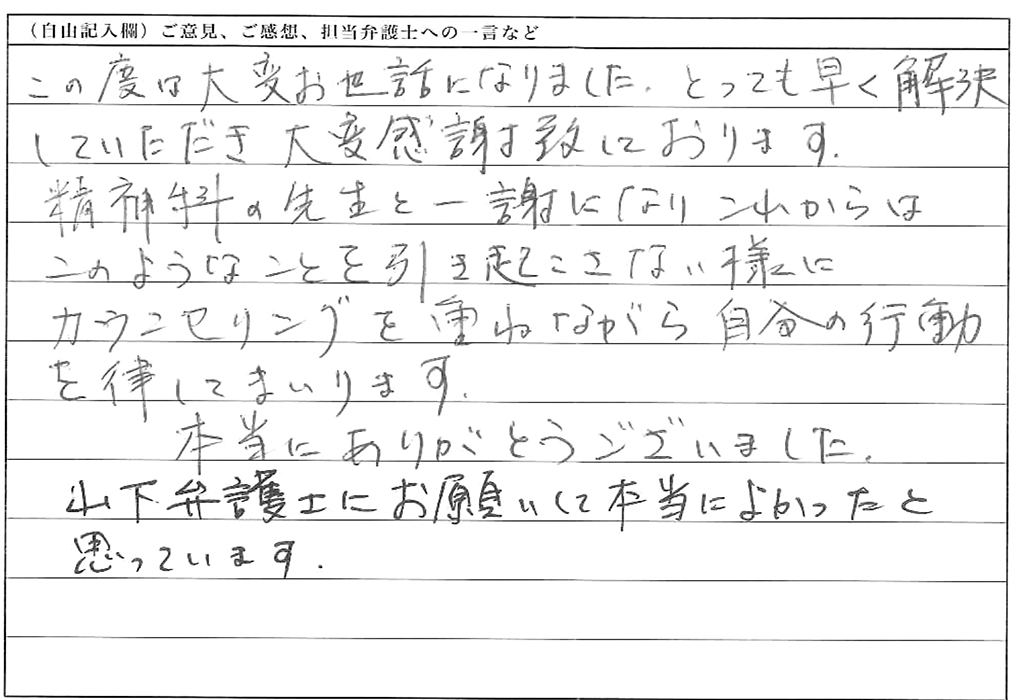 （自由記入欄）ご意見、ご感想、担当弁護士への一言など
この度は大変お世話になりました. とっても早く解決
していただき大変感謝致しております.
精神科の先生と一謝になりこれからは
このようなことを引き起こさない様に
カウンセリングを重ねながら自分の行動
を律してまいります.
本当にありがとうございました.
山下弁護士にお願いして本当によかったと
思っています.